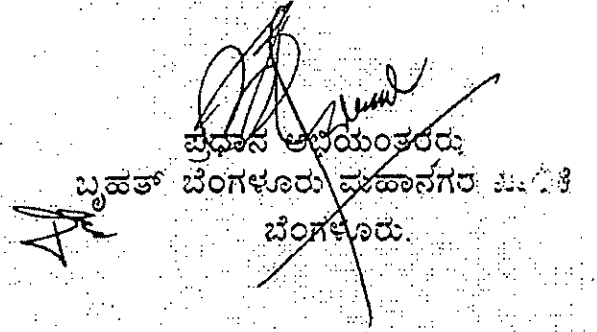 ಪ್ರಧಾನ ಅಭಿಯಂತರರು,
ಬೃಹತ್ ಬೆಂಗಳೂರು ಮಹಾನಗರ
ಬೆಂಗಳೂರು.